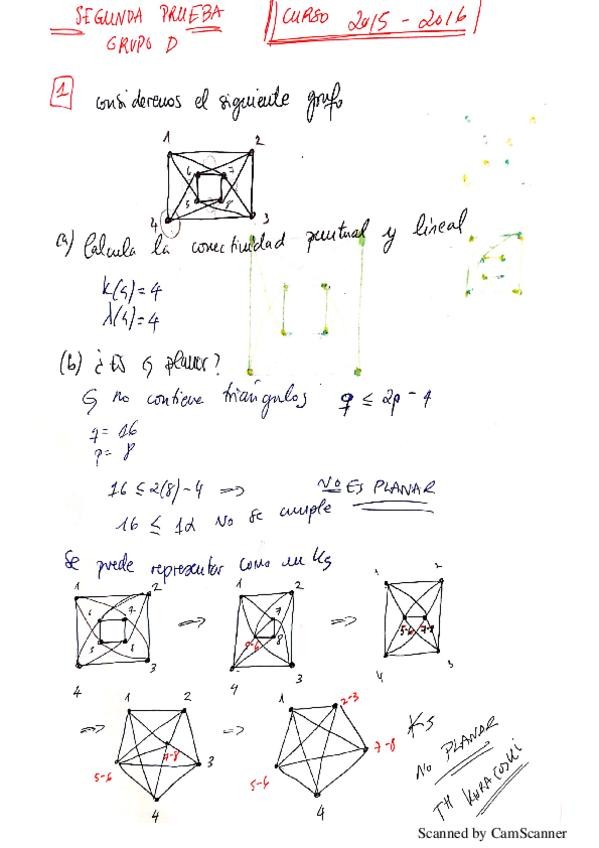 SEGUNDA PRUEBA
GRUPO D
CURSO 2015-2016
1 consideremos el siguiente grafo
1 2
6 7
5 8
4 3
(a) Calcula la conectividad puntual y lineal
K(G)=4
λ(G)=4
(b) ¿Es G planar?
G no contiene triángulos q ≤ 2p - 4
q = 16
p = 8
16 ≤ 2(8)-4 => NO ES PLANAR
16 ≤ 12 No se cumple
Se puede representar como un K5
1 2 1 2 1 2
6 7 7
5 8 5-6 8 5-6 7-8
=> =>
4 3 4 3 4 3
=> 1 2 => 1 2-3
7-8 3 7-8
5-6 5-6
4 4
K5
No PLANAR
TH KURATOSKI
Scanned by CamScanner